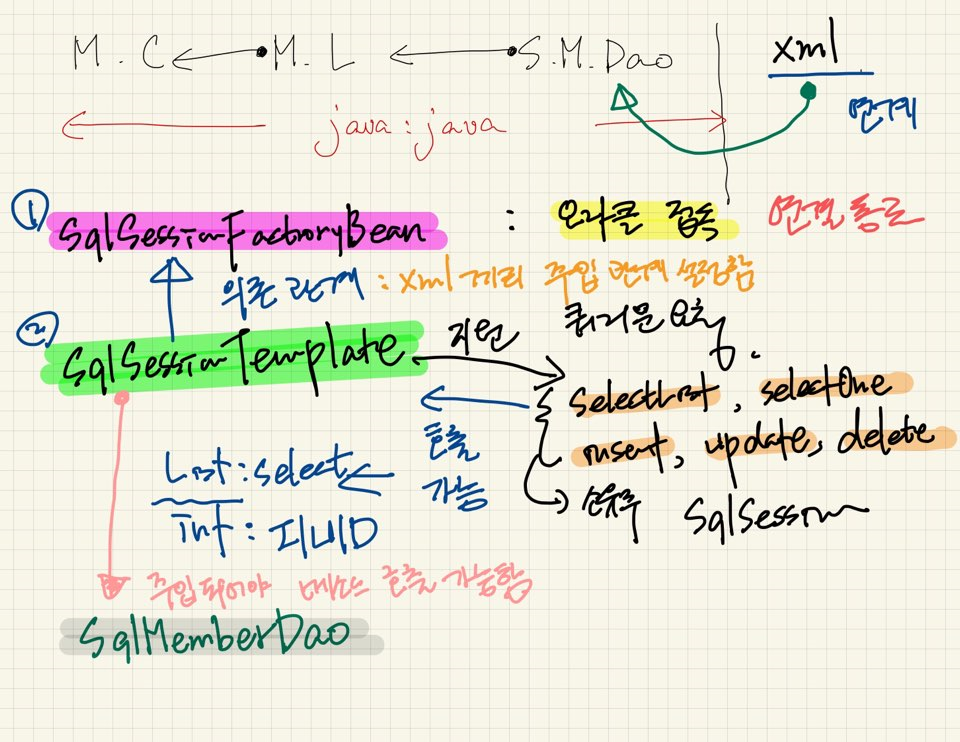 M.C M.L S.M.Dao xml
java : java 연계
① SqlSessionFactoryBean : 오라클 접속 연결통로
의존관계 : xml끼리 주입 관계 설정함
② SqlSessionTemplate 지원 쿼리문 요청
selectList, selectOne
호출 insert, update, delete
List : select 가능
소유주 SqlSession
int : I/U/D
주입되어야 메소드 호출 가능함
SqlMemberDao